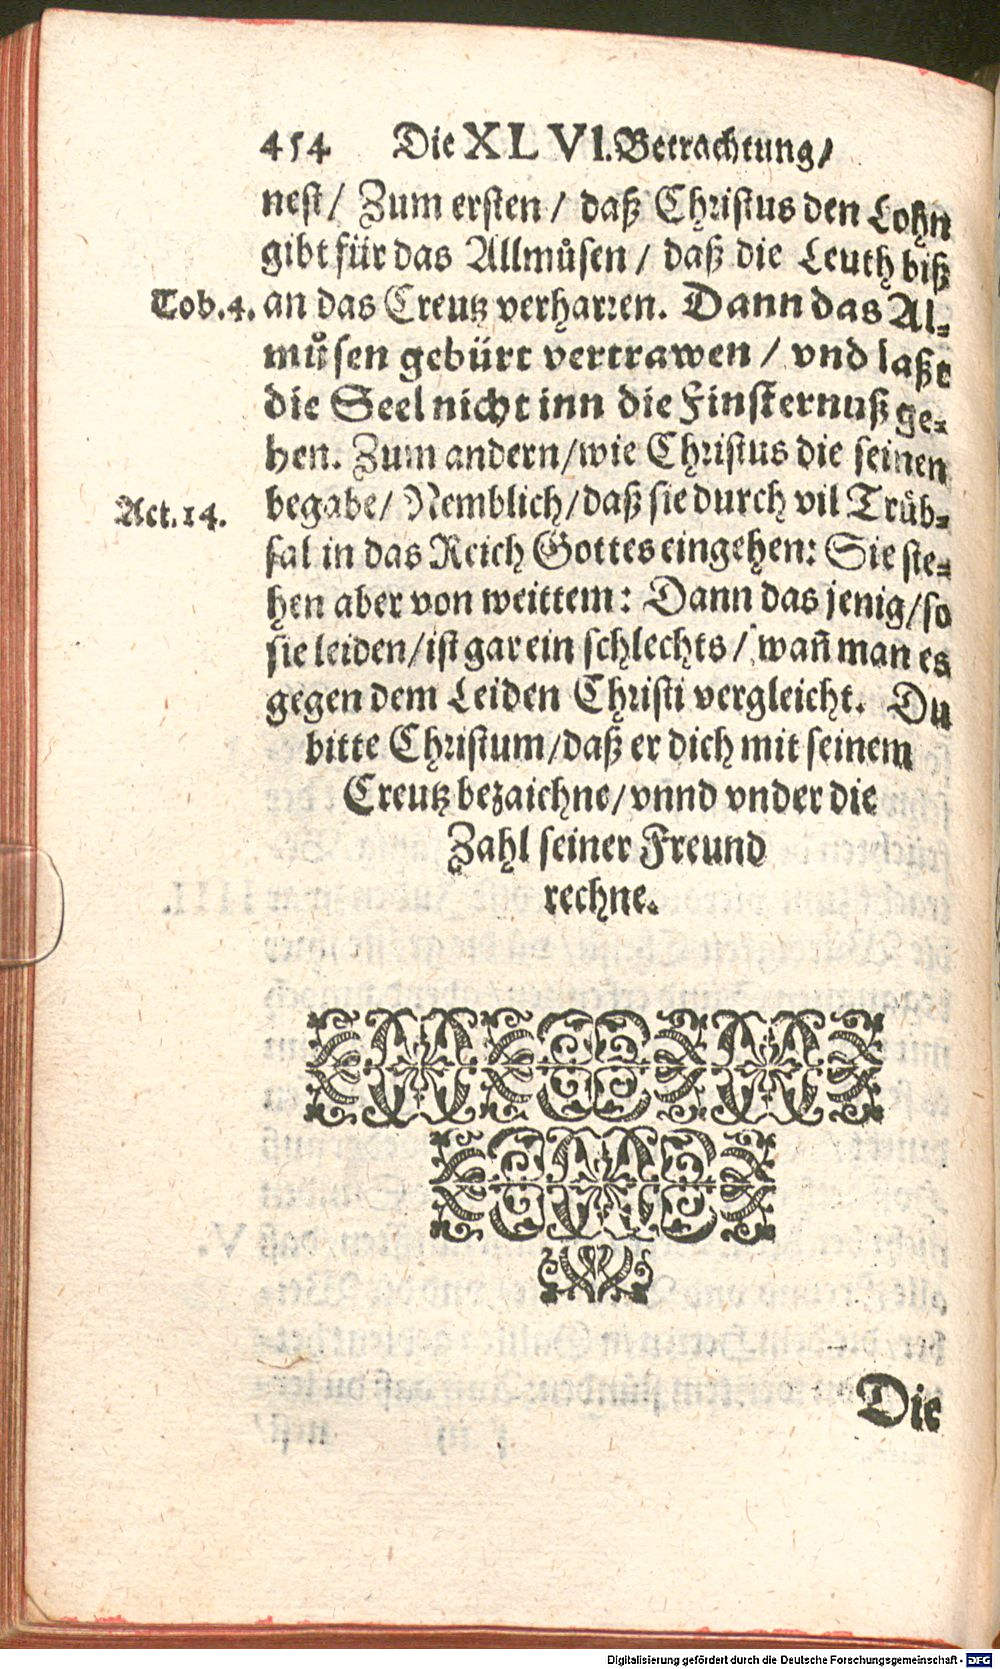 454 Die XLVI. Betrachtung/
nest/ Zum ersten/ daß Christus den Lohn
gibt für das Allmůsen/ daß die Leuth biß
Tob.4. an das Creutz verharren. Dann das Al-
můsen gebürt vertrawen/ vnd laßt
die Seel nicht inn die Finsternuß ge-
hen. Zum andern/ wie Christus die seinen
Act.14. begabe/ Nemblich/ daß sie durch vil Trůb-
sal in das Reich Gottes eingehen: Sie ste-
hen aber von weittem: Dann das jenig/ so
sie leiden/ ist gar ein schlechts/ wañ man es
gegen dem Leiden Christi vergleicht. Du
bitte Christum/ daß er dich mit seinem
Creutz bezaichne/ vnnd vnder die
Zahl seiner Freund
rechne.
Die
Digitalisierung gefördert durch die Deutsche Forschungsgemeinschaft - DFG